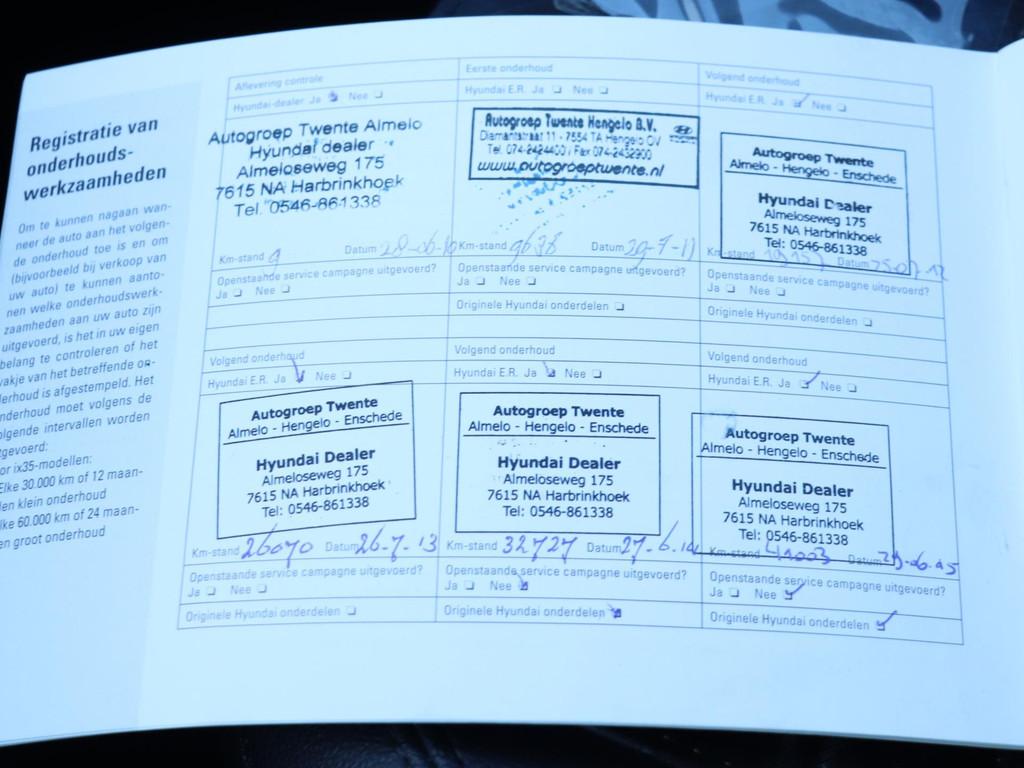 Registratie van
onderhouds-
werkzaamheden
Om te kunnen nagaan wan-
neer de auto aan het volgen-
de onderhoud toe is en om
(bijvoorbeeld bij verkoop van
uw auto) te kunnen aanto-
nen welke onderhoudswerk-
zaamheden aan uw auto zijn
uitgevoerd, is het in uw eigen
belang te controleren of het
vakje van het betreffende on-
derhoud is afgestempeld. Het
onderhoud moet volgens de
volgende intervallen worden
tgevoerd:
or ix35-modellen:
Elke 30.000 km of 12 maan-
den klein onderhoud
lke 60.000 km of 24 maan-
en groot onderhoud
Aflevering controle
Hyundai-dealer Ja Nee
Autogroep Twente Almelo
Hyundai dealer
Almeloseweg 175
7615 NA Harbrinkhoek
Tel. 0546-861338
Km-stand 9 Datum 28-06-10
Openstaande service campagne uitgevoerd?
Ja Nee
Eerste onderhoud
Hyundai E.R. Ja Nee
Autogroep Twente Hengelo B.V.
Diamantstraat 11 - 7554 TA Hengelo OV
Tel. 074-2424400 / Fax 074-2432900
www.autogroeptwente.nl
Km-stand 9678 Datum 29-7-11
Openstaande service campagne uitgevoerd?
Ja Nee
Originele Hyundai onderdelen
Volgend onderhoud
Hyundai E.R. Ja Nee
Autogroep Twente
Almelo - Hengelo - Enschede
Hyundai Dealer
Almeloseweg 175
7615 NA Harbrinkhoek
Tel: 0546-861338
Km-stand Datum
Openstaande service campagne uitgevoerd?
Ja Nee
Originele Hyundai onderdelen
Volgend onderhoud
Hyundai E.R. Ja Nee
Autogroep Twente
Almelo - Hengelo - Enschede
Hyundai Dealer
Almeloseweg 175
7615 NA Harbrinkhoek
Tel: 0546-861338
Km-stand 26070 Datum 26-7-13
Openstaande service campagne uitgevoerd?
Ja Nee
Originele Hyundai onderdelen
Volgend onderhoud
Hyundai E.R. Ja Nee
Autogroep Twente
Almelo - Hengelo - Enschede
Hyundai Dealer
Almeloseweg 175
7615 NA Harbrinkhoek
Tel: 0546-861338
Km-stand 32727 Datum 27-6-14
Openstaande service campagne uitgevoerd?
Ja Nee
Originele Hyundai onderdelen
Volgend onderhoud
Hyundai E.R. Ja Nee
Autogroep Twente
Almelo - Hengelo - Enschede
Hyundai Dealer
Almeloseweg 175
7615 NA Harbrinkhoek
Tel: 0546-861338
Km-stand 41003 Datum
Openstaande service campagne uitgevoerd?
Ja Nee
Originele Hyundai onderdelen